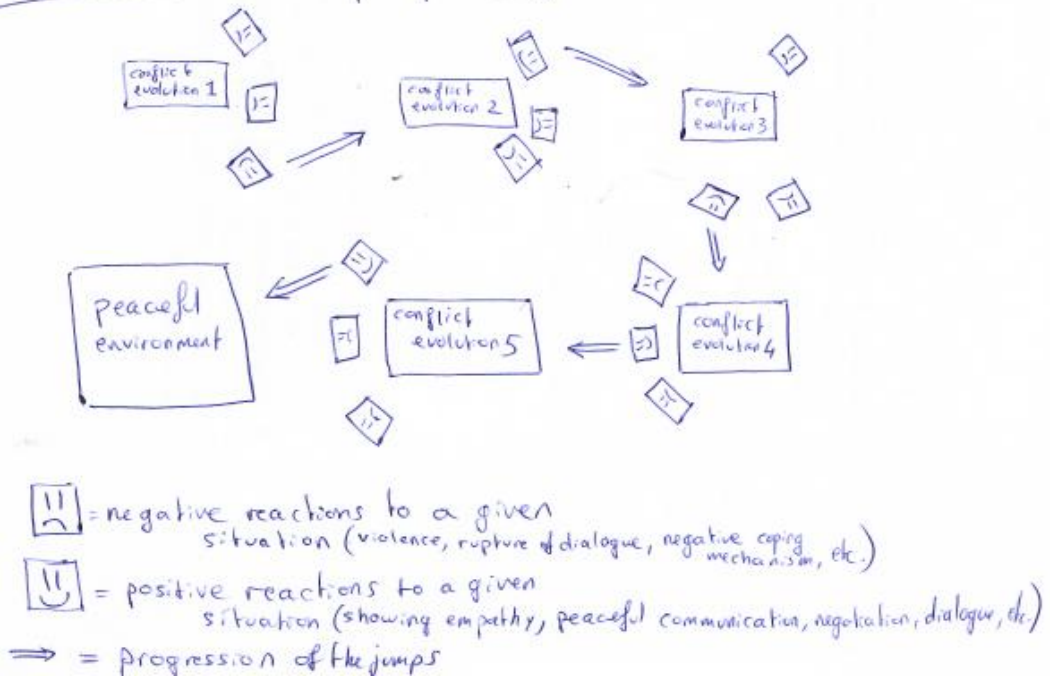 conflict
evolution 1
conflict
evolution 2
conflict
evolution 3
peaceful
environment
conflict
evolution 5
conflict
evolution 4
= negative reactions to a given
situation (violence, rupture of dialogue, negative coping
mechanism, etc.)
= positive reactions to a given
situation (showing empathy, peaceful communication, negotiation, dialogue, etc.)
= progression of the jumps